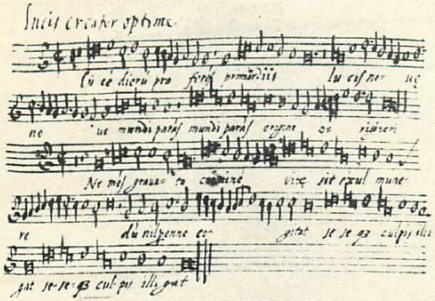 Lucis creator optime.
Lu ce dierū pro ferēs primordiis lu cis no- ue
no ue mundi parās mundi parās origine
Ne mēs graua- ta crimine Vitę sit exul mune-
re dū nil perenne co- gitat se se qȝ culpis illi
gat se- se- qȝ cul- pis illi gat